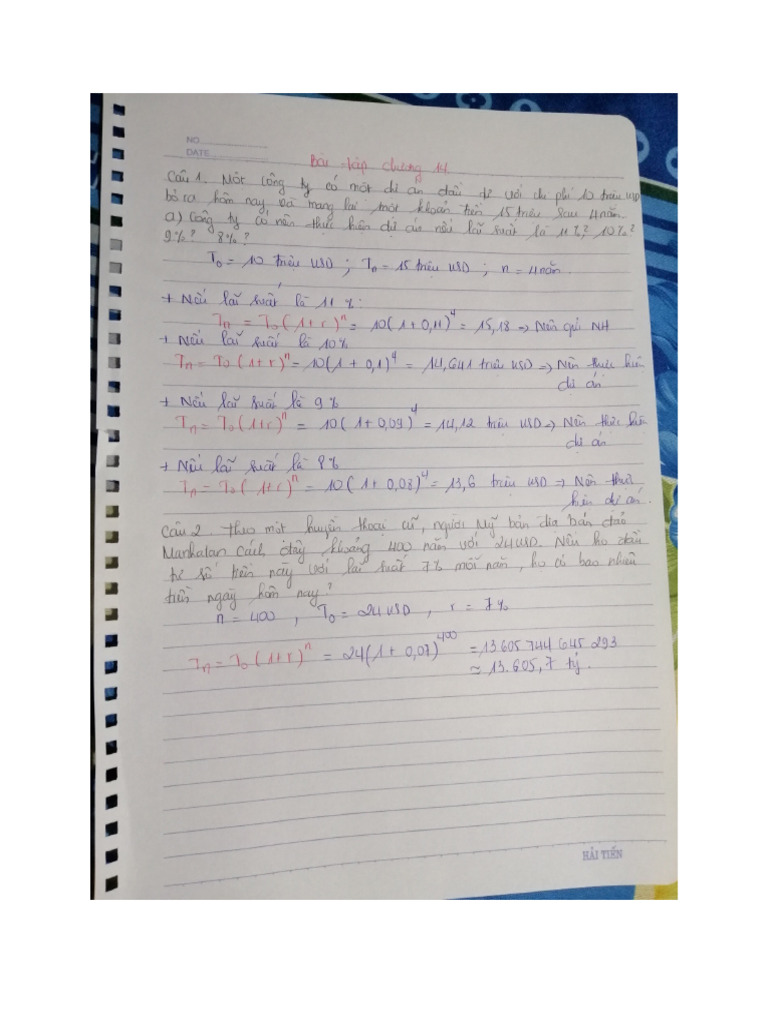 NO.
DATE
Bài tập chương 14
Câu 1. Một công ty có một dự án đầu tư với chi phí 10 triệu USD
bỏ ra hôm nay và mang lại một khoản tiền 15 triệu sau 4 năm.
a) Công ty có nên thực hiện dự án nếu lãi suất là 11%? 10%?
9%? 8%?
T₀ = 10 triệu USD ; T₀ = 15 triệu USD ; n = 4 năm.
+ Nếu lãi suất là 11%:
Tn = T₀(1+r)ⁿ = 10(1+0,11)⁴ = 15,18 => Nên gửi NH
+ Nếu lãi suất là 10%
Tn = T₀(1+r)ⁿ = 10(1+0,1)⁴ = 14,641 triệu USD => Nên thực hiện
dự án
+ Nếu lãi suất là 9%
Tn = T₀(1+r)ⁿ = 10(1+0,09)⁴ = 14,12 triệu USD => Nên thực hiện
dự án
+ Nếu lãi suất là 8%
Tn = T₀(1+r)ⁿ = 10(1+0,08)⁴ = 13,6 triệu USD => Nên thực
hiện dự án.
Câu 2. Theo một huyền thoại cũ, người Mỹ bản địa bán đảo
Manhatan cách đây khoảng 400 năm với 24 USD. Nếu họ đầu
tư số tiền này với lãi suất 7% mỗi năm, họ có bao nhiêu
tiền ngày hôm nay?
n = 400 , T₀ = 24 USD , r = 7%
Tn = T₀(1+r)ⁿ = 24(1+0,07)⁴⁰⁰ = 13 605 744 645 293
≈ 13.605,7 tỷ.
HẢI TIẾN